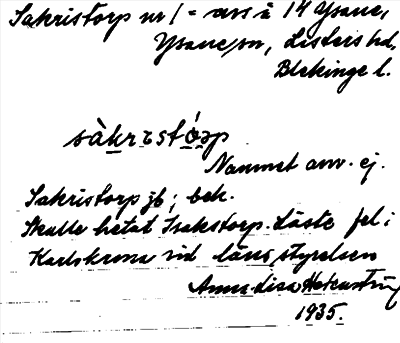 Sakristorp nr 1 = avs å 14 Ysane,
Ysane sn, Listers hd,
Blekinge l.
sàkrɪstóᶕp
Namnet anv. ej.
Sakristorp jb; bek.
Skulle hetat Isakstorp. Läste fel i
Karlskrona vid länsstyrelsen
Anna-Lisa
1935.